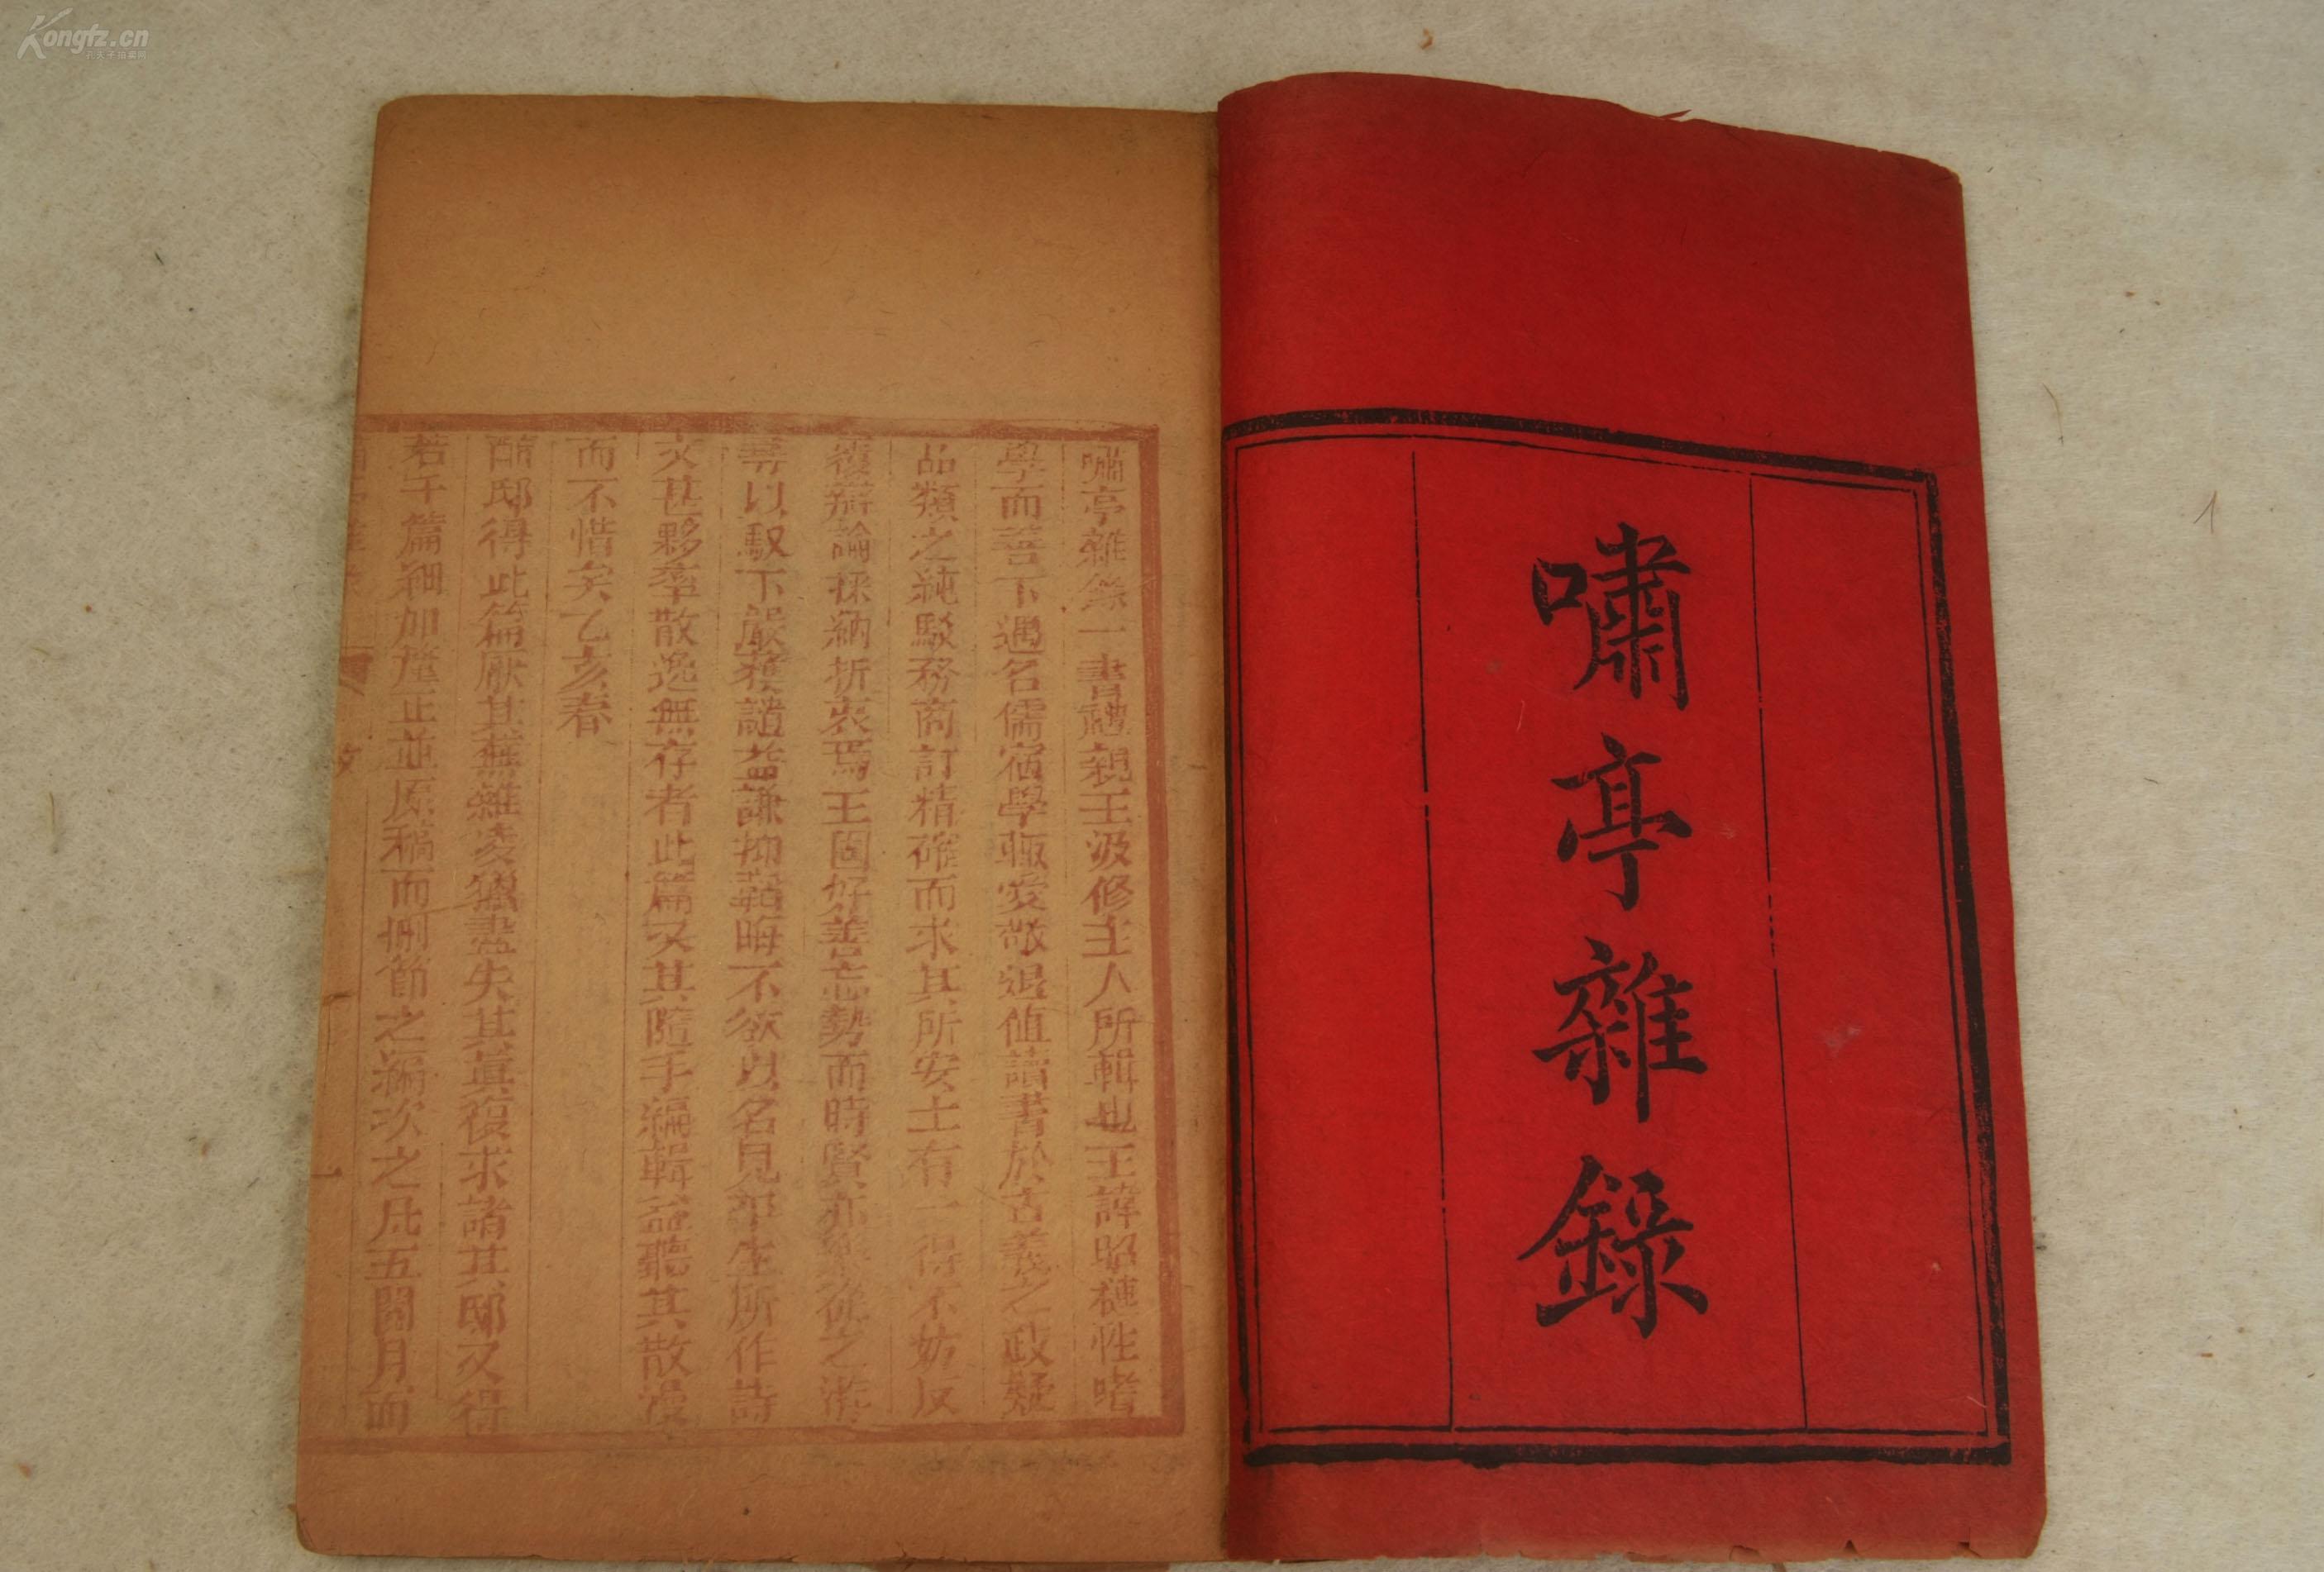 嘯亭雜錄
嘯亭雜錄一書禮親王汲修主人所輯也王諱昭槤性嗜
學而善下遇名儒宿學輒愛敬退值讀書於古義之政疑
品類之純駁務商訂精確而求其所安士有一得不妨反
覆辯論採納折衷焉王固好善忘勢而時賢亦樂從之游
尋以馭下嚴獲譴益謙抑韜晦不欲以名見平生所作詩
文甚夥率散逸無存者此篇又其隨手編輯益聽其散漫
而不惜矣乙亥春
醇邸得此篇厭其蕪雜凌獵盡失其眞復求諸其邸又得
若干篇細加釐正並原稿而刪節之編次之凡五閱月而
Kongfz.cn